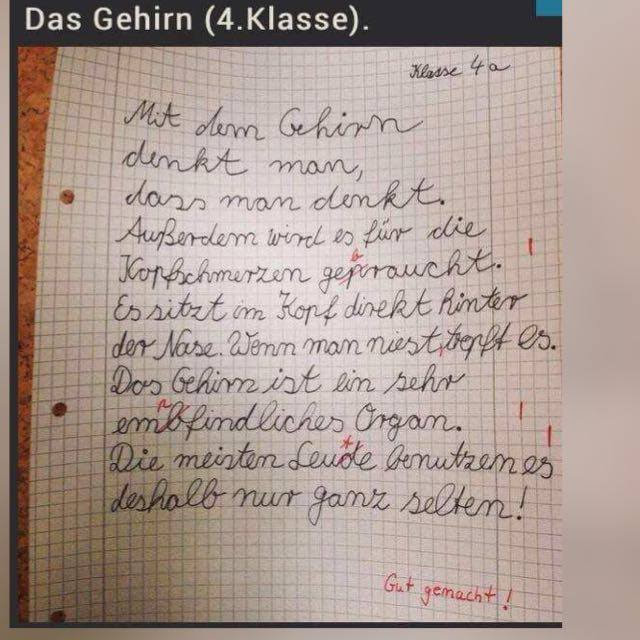 Das Gehirn (4.Klasse).
Klasse 4a
Mit dem Gehirn
denkt man,
dass man denkt.
Außerdem wird es für die
Kopfschmerzen gepraucht.
b
Es sitzt im Kopf direkt hinter
der Nase. Wenn man niest, tropft es.
Das Gehirn ist ein sehr
p
embfindliches Organ.
t
Die meisten Leude benutzen es
deshalb nur ganz selten!
Gut gemacht!